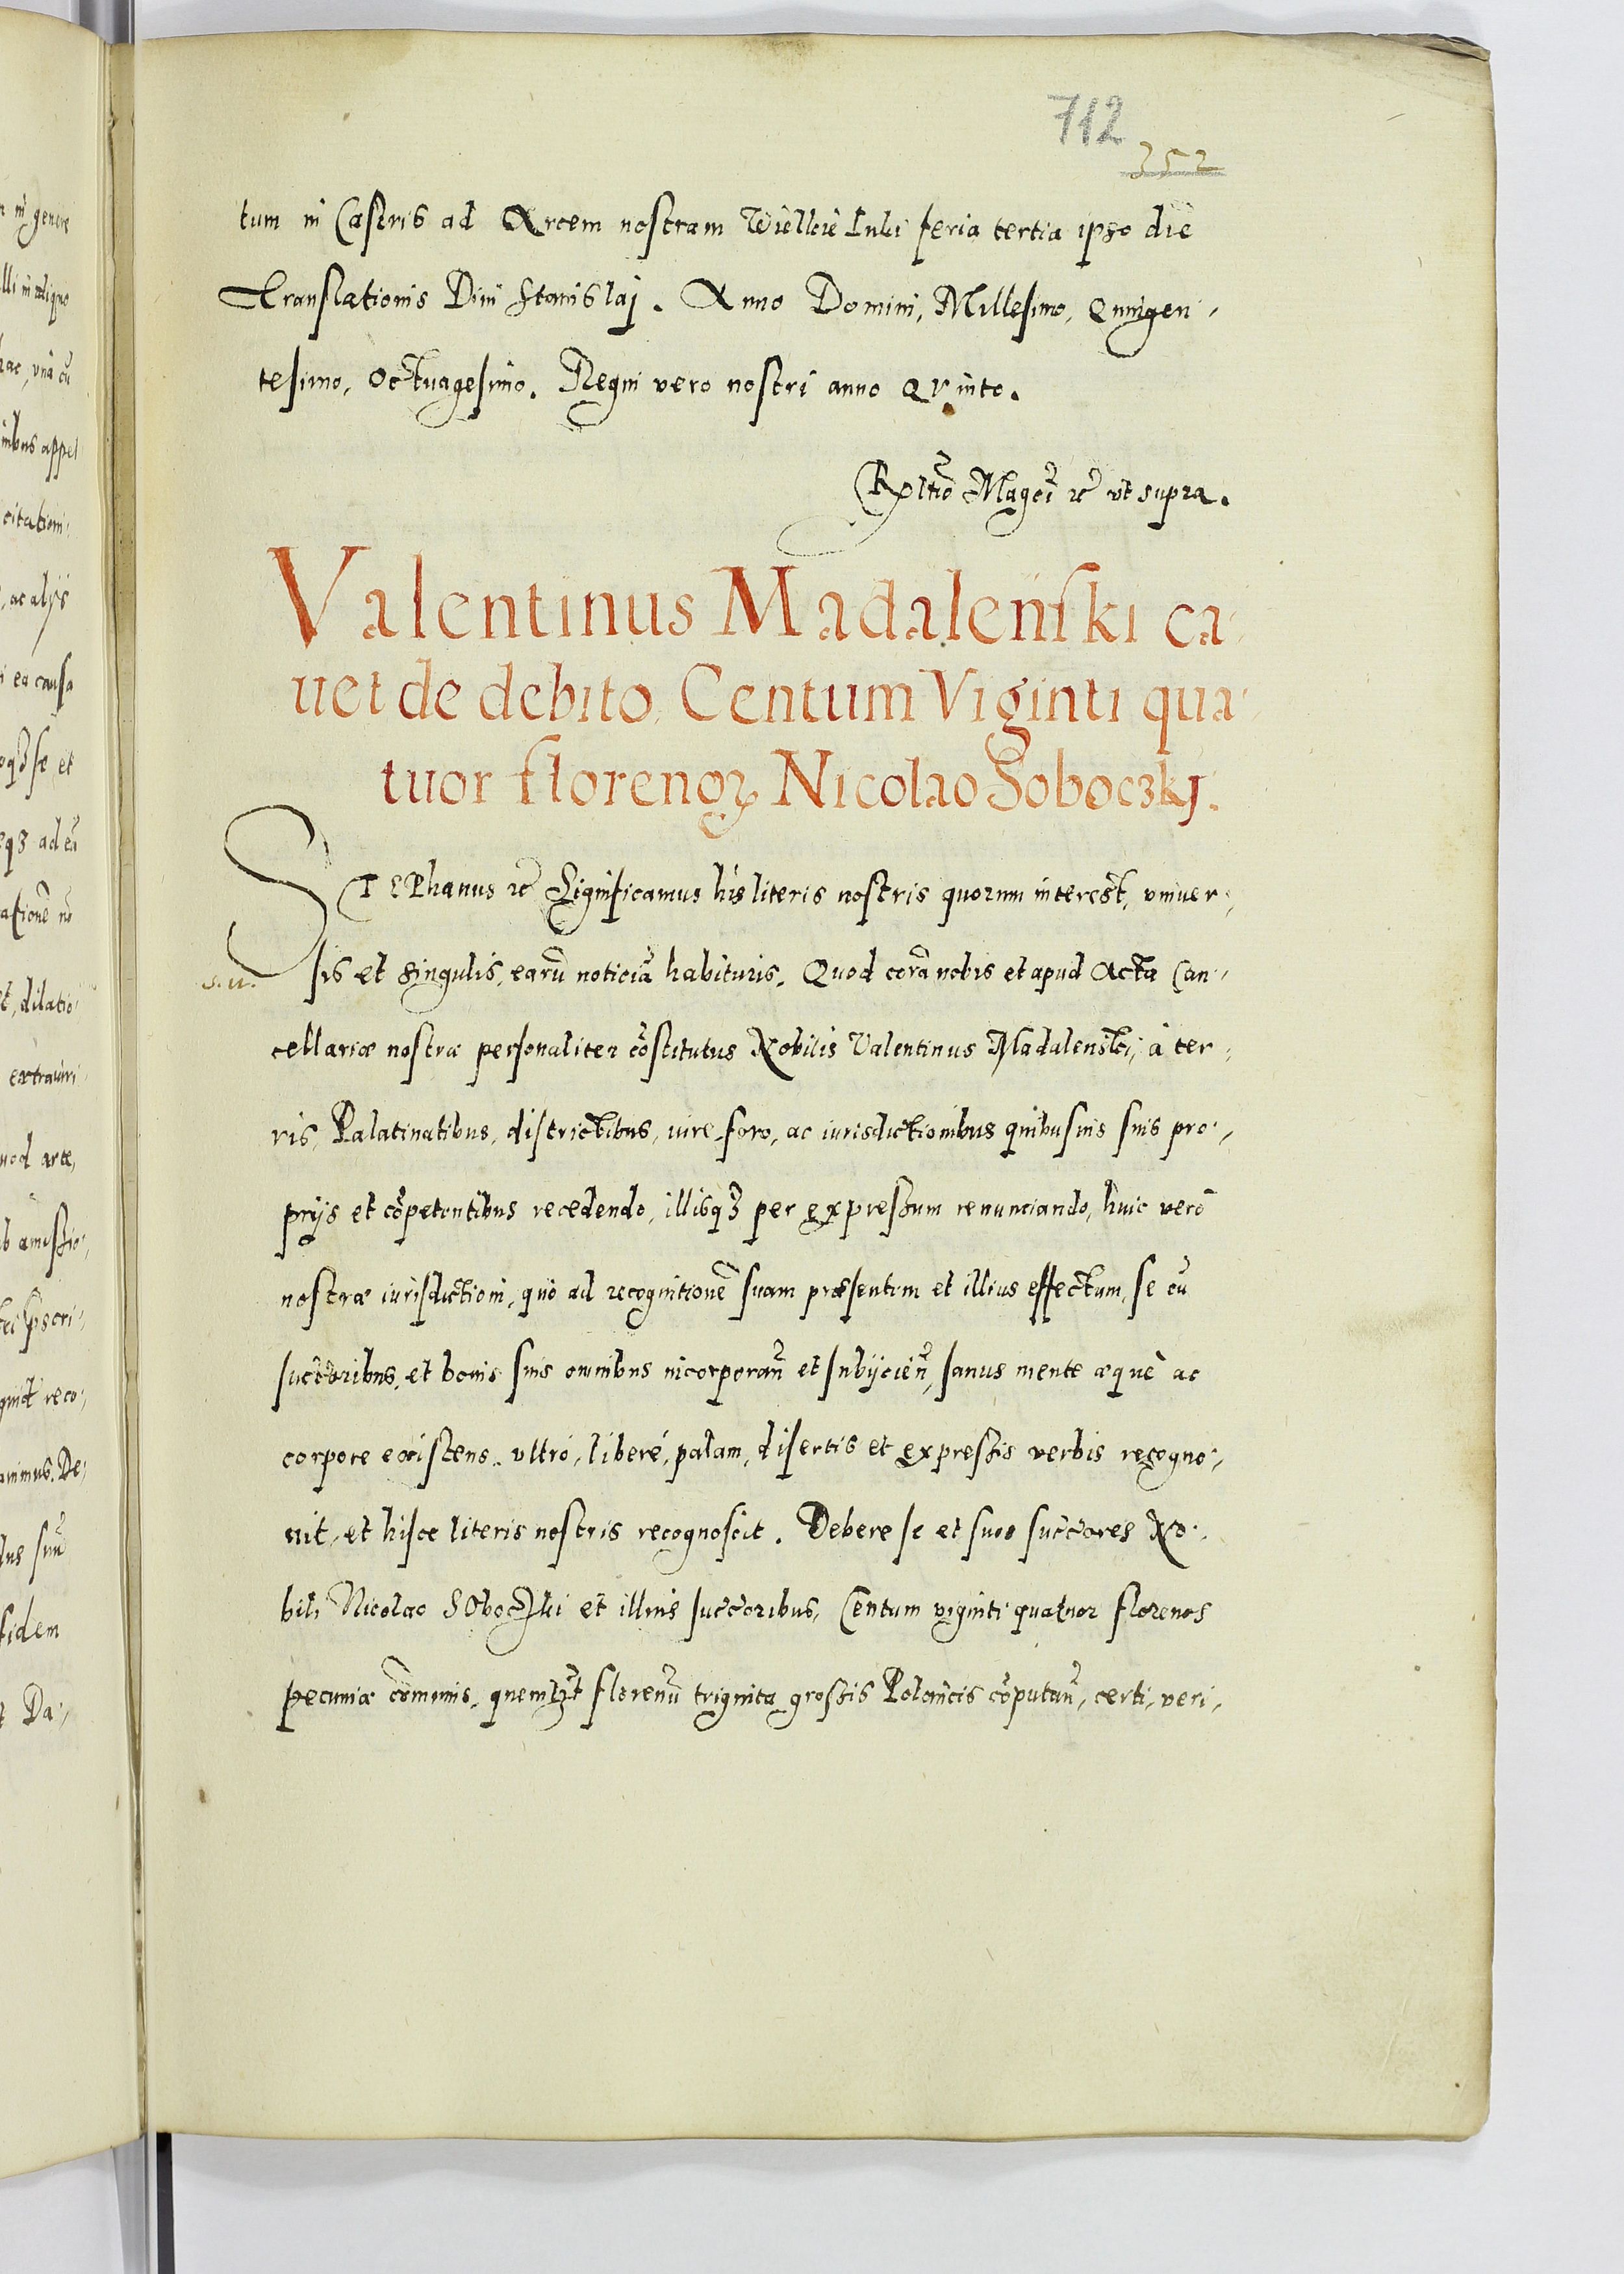 712
352
tum in Castris ad Arcem nostram Wiellkie Luki feria tertia ipso die
Translationis Diui Stanislaj. Anno Domini, Millesimo, Quingen,
tesimo, Octuagesimo. Regni vero nostri anno Qvinto.
Rꝑltio Magci rc̃ vt supra.
Valentinus Madalenski ca,
uet de debito, Centum Viginti qua,
tuor florenoꝝ Nicolao Soboczkj.
STEPhanus rc̃ Significamus his literis nostris quorum interest, vniuer,
s. u.
sis et singulis, earũ noticiã habituris. Quod corã nobis et apud Acta Can,
cellariæ nostræ personaliter cõstitutus Nobilis Valentinus Madalenski, à ter,
ris, Palatinatibus, districtibus, iure, foro, ac iurisdictionibus quibusuis suis pro,
prijs et cõpetentibus recedendo, illisqꝫ per expressum renunciando, huic verò
nostræ iurisdictioni, quò ad recognitionẽ suam præsentem et illius effectum, se cũ
succ̃oribus, et bonis suis omnibus incorporan̄ et subijcien̄, sanus mente æquè ac
corpore existens, vltrò, liberé, palam, disertis et expressis verbis recogno,
uit, et hisce literis nostris recognoscit. Debere se et suos succ̃ores No,
bili Nicolao SOboczki et illius succ̃oribus, Centum viginti quatuor florenos
pecuniæ cõmunis, quemlꝫt florenũ triginta grossis Polonicis cõputan̄, certi, veri,
in genere
lli in aliquo
hac, vnà cũ
inibus appel
citationi,
, ac alijs
ea causa
oqꝫ se et
eqꝫ ad eã
et, dilatio
extraiuri
uod arce,
b amissio,
reco,
animus. De,
fidem
Da,